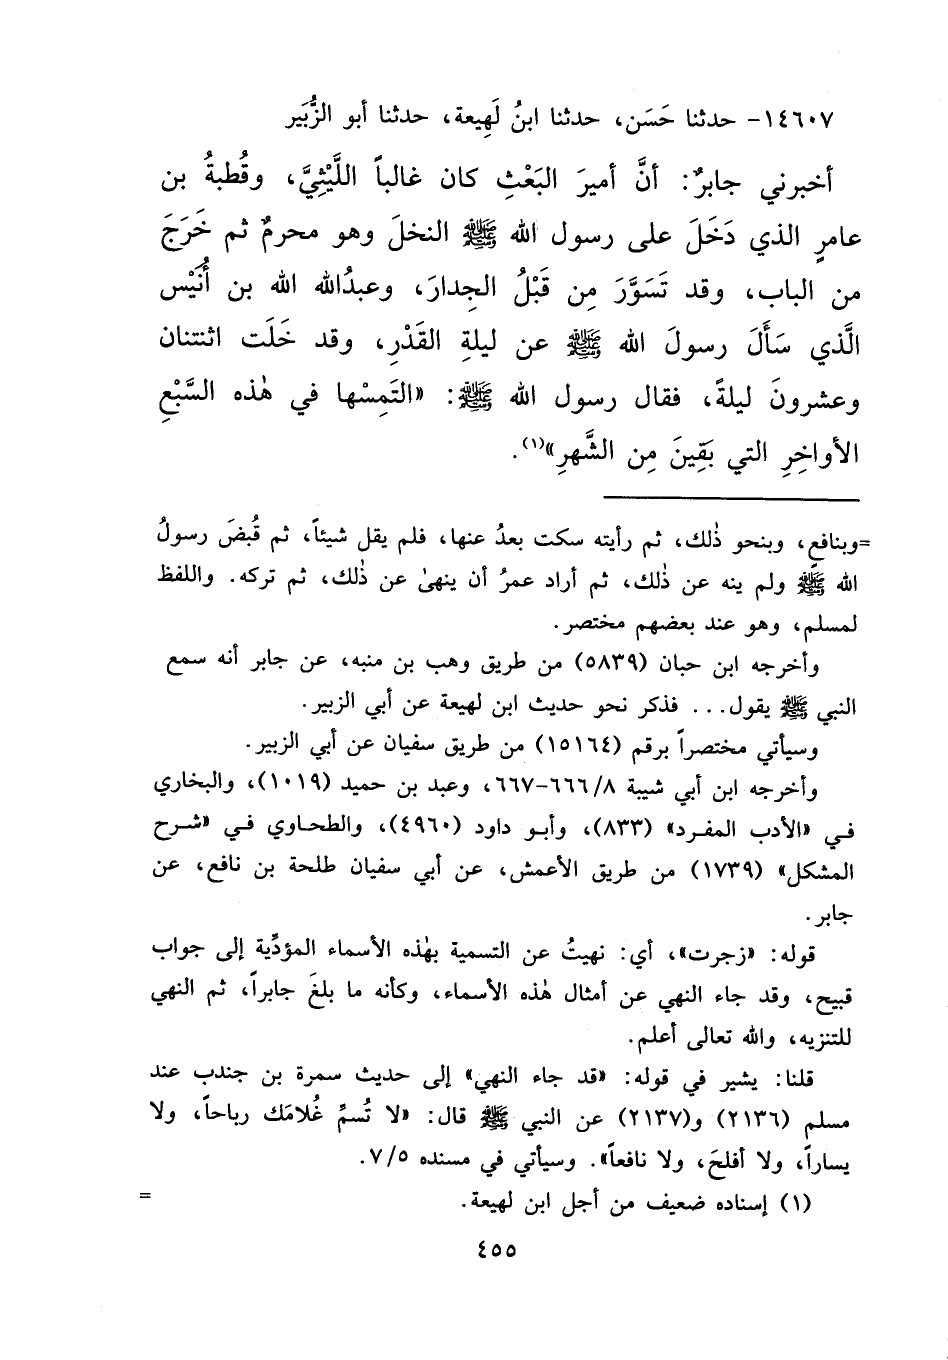 ١٤٦٠٧- حدثنا حَسَن، حدثنا ابنُ لَهِيعة، حدثنا أبو الزُّبَير
أخبرني جابرٌ: أنَّ أميرَ البَعْثِ كان غالباً اللَّيْثِيَّ، وقُطبةُ بن
عامرٍ الذي دَخَلَ على رسول الله ﷺ النخلَ وهو محرمٌ ثم خَرَجَ
من الباب، وقد تَسَوَّرَ مِن قَبْلُ الجِدارَ، وعبدُالله الله بن أُنَيْس
الَّذي سَأَلَ رسولَ الله ﷺ عن ليلةِ القَدْرِ، وقد خَلَت اثنتنان
وعشرونَ ليلةً، فقال رسول الله ﷺ: «التَمِسْها في هٰذه السَّبْعِ
الأواخِرِ التي بَقِينَ مِن الشَّهرِ»(١).
=وبنافعٍ، وبنحو ذٰلك، ثم رأيته سكت بعدُ عنها، فلم يقل شيئاً، ثم قُبضَ رسولُ
الله ﷺ ولم ينه عن ذٰلك، ثم أراد عمرُ أن ينهىٰ عن ذٰلك، ثم تركه. واللفظ
لمسلم، وهو عند بعضهم مختصر.
وأخرجه ابن حبان (٥٨٣٩) من طريق وهب بن منبه، عن جابر أنه سمع
النبي ﷺ يقول... فذكر نحو حديث ابن لهيعة عن أبي الزبير.
وسيأتي مختصراً برقم (١٥١٦٤) من طريق سفيان عن أبي الزبير.
وأخرجه ابن أبي شيبة ٨/ ٦٦٦-٦٦٧، وعبد بن حميد (١٠١٩)، والبخاري
في «الأدب المفرد» (٨٣٣)، وأبو داود (٤٩٦٠)، والطحاوي في «شرح
المشكل» (١٧٣٩) من طريق الأعمش، عن أبي سفيان طلحة بن نافع، عن
جابر.
قوله: «زجرت»، أي: نهيتُ عن التسمية بهٰذه الأسماء المؤدِّية إلى جواب
قبيح، وقد جاء النهي عن أمثال هٰذه الأسماء، وكأنه ما بلغَ جابراً، ثم النهي
للتنزيه، والله تعالى أعلم.
قلنا: يشير في قوله: «قد جاء النهي» إلى حديث سمرة بن جندب عند
مسلم (٢١٣٦) و(٢١٣٧) عن النبي ﷺ قال: «لا تُسمِّ غُلامَك رباحاً، ولا
يساراً، ولا أفلحَ، ولا نافعاً». وسيأتي في مسنده ٧/٥.
(١) إسناده ضعيف من أجل ابن لهيعة. =
٤٥٥